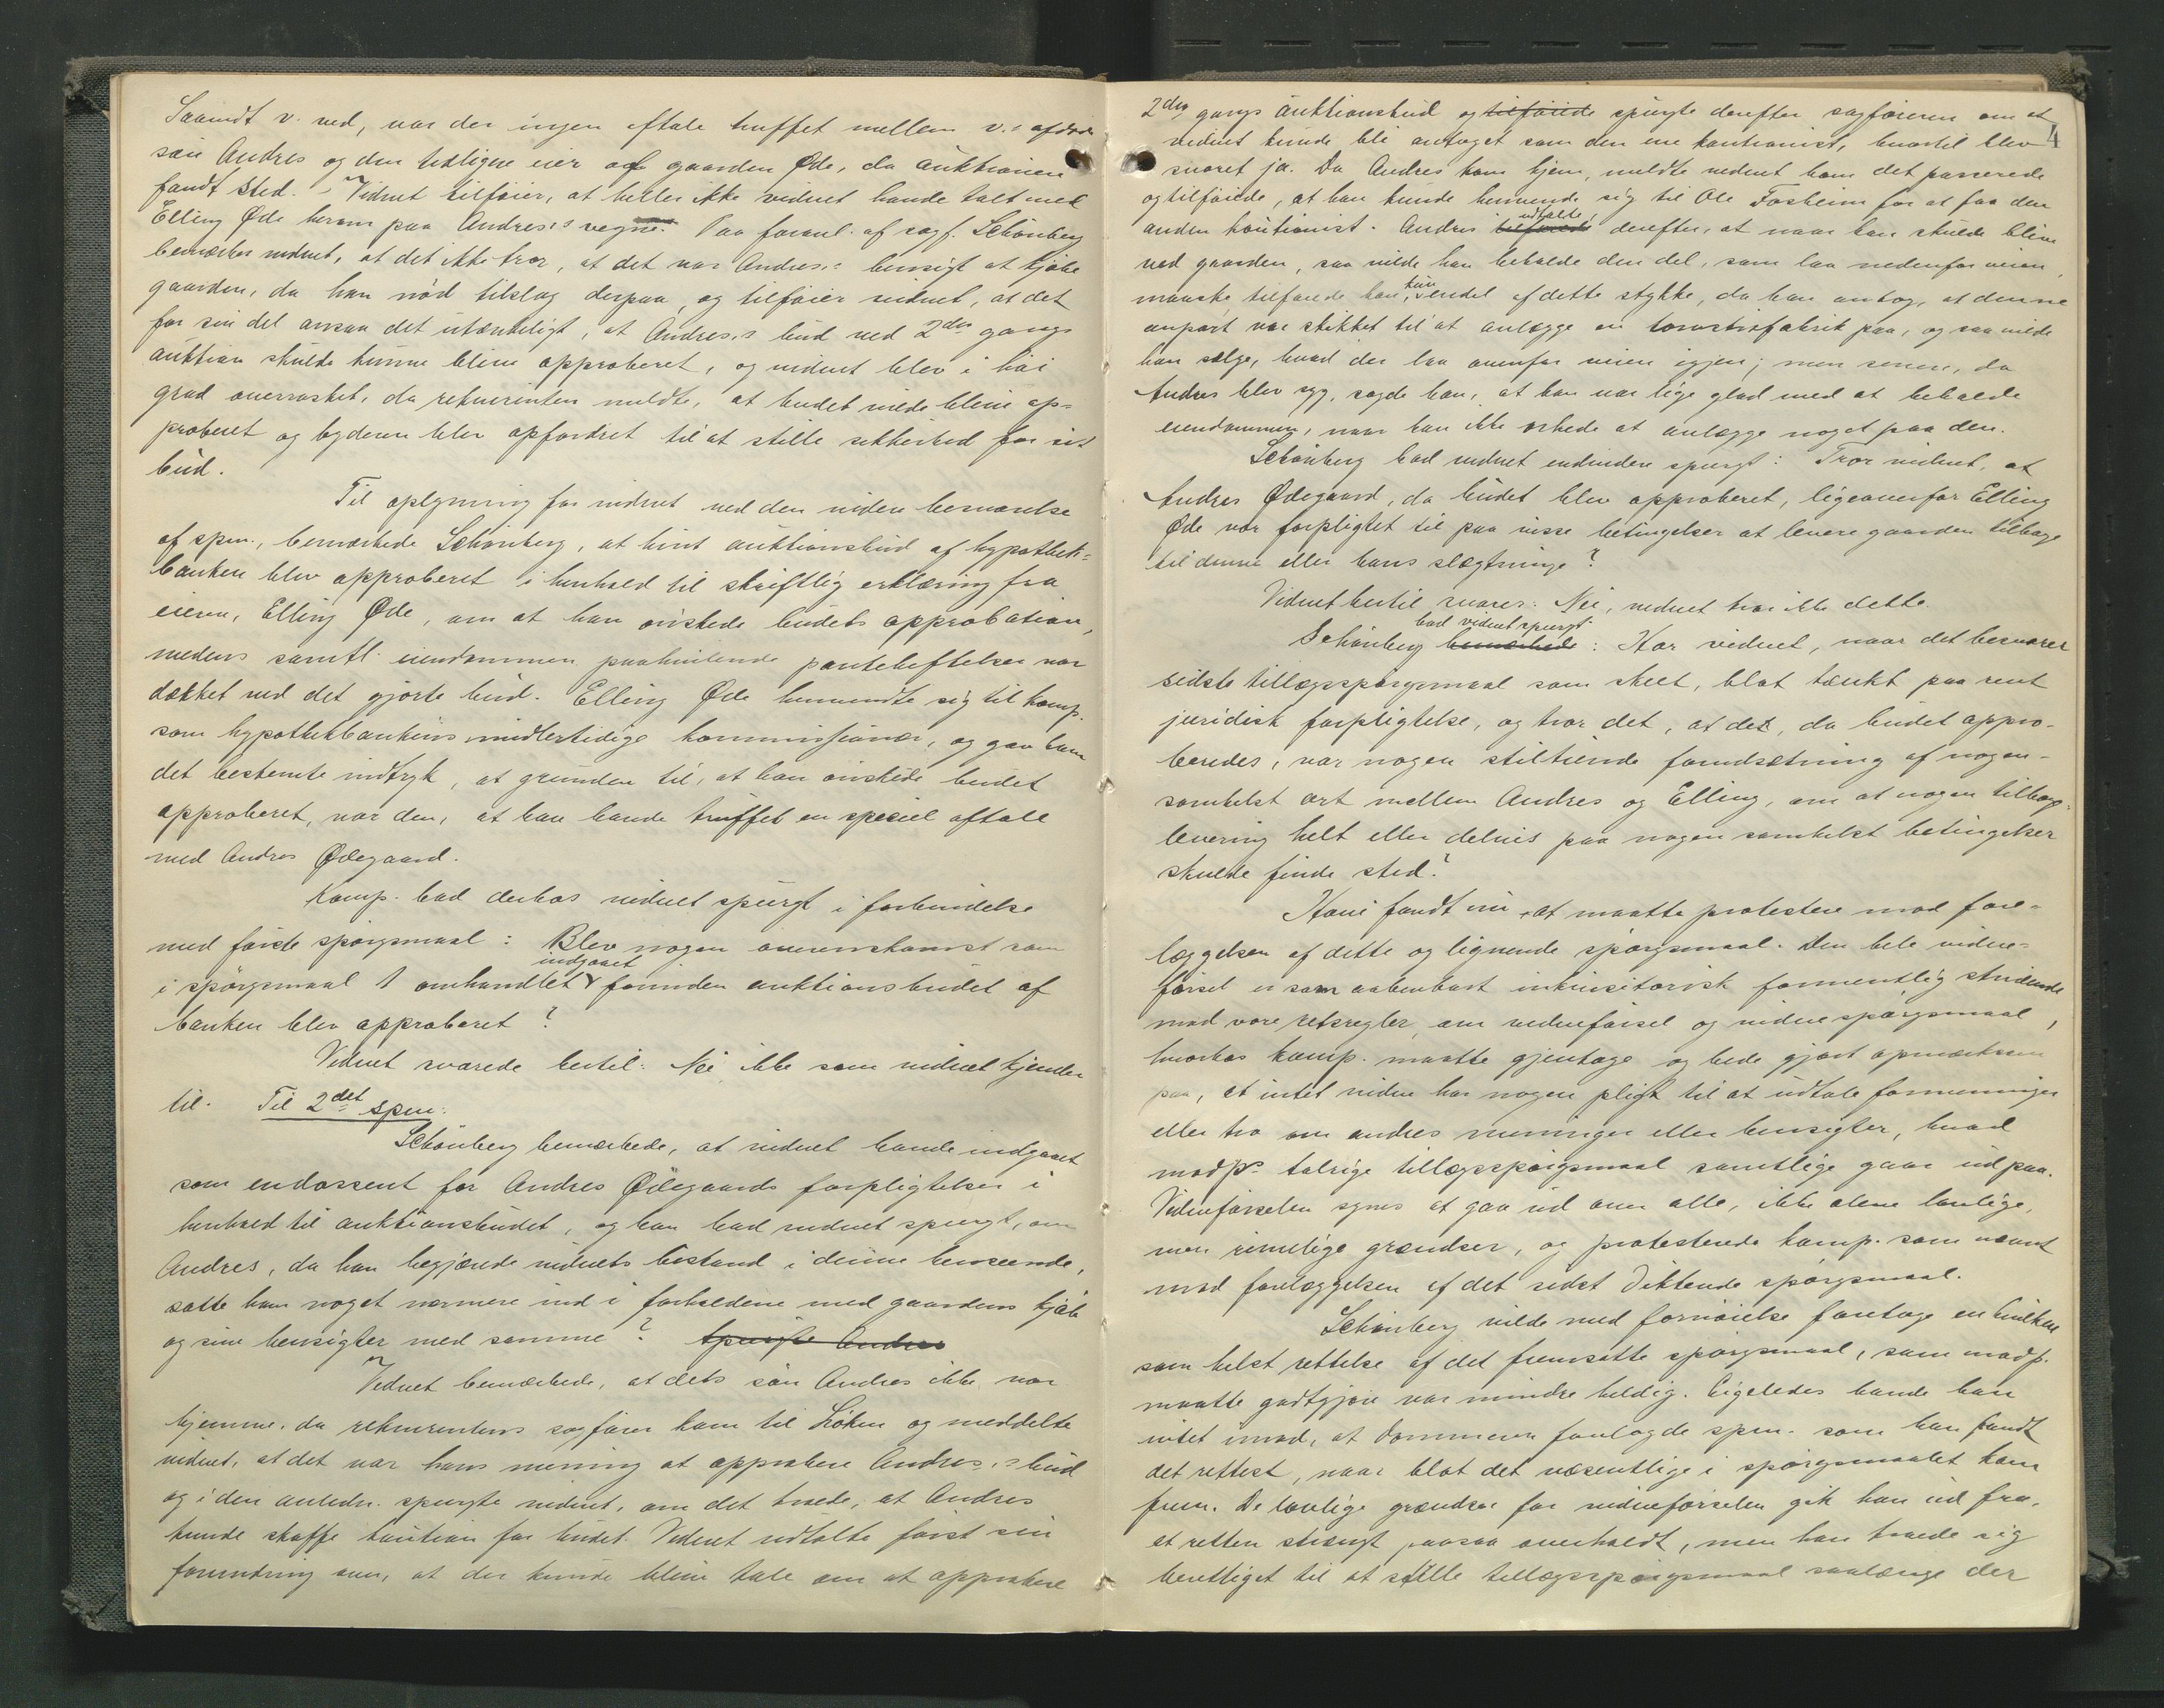 Saavidt v. ved, var der ingen aftale truffet mellem v.s afdøde
søn Andres og den tidligere eier af gaarden Øde, da auktionen
fandt sted. - Vidnet tilføier, at heller ikke vidnet havde talt med
Elling Øde herom paa Andres's vegne. Paa foranl. af sagf. Schönberg
bemærker vidnet, at det ikke tror, at det var Andres's hensigt at kjøbe
gaarden, da han nød tilslag derpaa, og tilføier vidnet, at det
for sin del ansaa det utænkeligt, at Andres's bud ved 2den gangs
auktion skulde kunne blive approberet, og vidnet blev i høi
grad overrasket, da rekvirenten meldte, at budet vilde blive ap-
proberet og byderen blev opfordret til at stille sikkerhed for sit
bud.
Til oplysning for vidnet ved den videre besvarelse
af spm., bemærkede Schönberg, at hint auktionsbud af hypothek-
banken blev approberet i henhold til skriftlig erklæring fra
eieren, Elling Øde, om at han ønskede budets approbation,
medens samtl. eiendommen paahvilende pantehæftelser var
dækket ved det gjorte bud. Elling Øde henvendte sig til komp.
som hypothekbankens midlertidige kommissionær, og gav ham
det bestemte indtryk, at grunden til, at han ønskede budet
approberet, var den, at han havde truffet en speciel aftale
med Andres Ødegaard.
Komp. bad derhos vidnet spurgt i forbindelse
med første spørgsmaal: Blev nogen overenskomst som
i spørgsmaal 1 omhandlet indgaaet forinden auktionsbudet af
banken blev approberet?
Vidnet svarede hertil: Nei, ikke som vidnet kjender
til. Til 2det spm:
Schönberg bemærkede, at vidnet havde indgaaet
som endossent for Andres Ødegaards forpligtelser i
henhold til auktionsbudet, og han bad vidnet spurgt, om
Andres, da han begjærede vidnets bistand i denne henseende,
satte ham noget nærmere ind i forholdene med gaardens kjøb
og sine hensigter med samme? spurgte Andres
Vidnet bemærkede, at dets søn Andres ikke var
hjemme, da rekvirentens sagfører kom til Løken og meddelte
vidnet, at det var hans mening at approbere Andres's bud
og i den anledn. spurgte vidnet, om det troede, at Andres
kunde skaffe kaution for budet. Vidnet udtalte først sin
forundring over, at der kunde blive tale om at approbere
4
2den gangs auktionsbud og tilføiede spurgte derefter sagføreren om at
vidnet kunde bli antaget som den ene kautionist, hvortil blev
svaret ja. Da Andres kom hjem, meldte vidnet ham det passerede
og tilføiede, at han kunde henvende sig til Ole Fosheim for at faa den
anden kautionist. Andres tilføiede udtalte derefter, at naar han skulde blive
ved gaarden, saa vilde han beholde den del, som laa nedenfor veien,
maaske tilføiede han, kun endel af dette stykke, da han antog, at denne
anpart var skikket til at anlægge en torvstrøfabrik paa, og saa vilde
han sælge, hvad der laa ovenfor veien igjen; men senere, da
Andres blev syg, sagde han, at han var lige glad med at beholde
eiendommen, naar han ikke orkede at anlægge noget paa den.
Schönberg bad vidnet endvidere spurgt: Tror vidnet, at
Andres Ødegaard, da budet blev approberet, ligeoverfor Elling
Øde var forpligtet til paa visse betingelser at levere gaarden tilbage
til denne eller hans slægtninge?
Vidnet hertil svarer: Nei, vidnet tror ikke dette.
Schönberg bemærkede bad vidnet spurgt: Har vidnet, naar det besvarer
sidste tillægsspørgsmaal som skeet, blot tænkt paa rent
juridisk forpligtelse, og tror det, at det, da budet appro-
beredes, var nogen stiltiende forudsætning af nogen-
somhelst art mellem Andres og Elling, om at nogen tilbage-
levering helt eller delvis paa nogen somhelst betingelser
skulde finde sted?
Hove fandt nu at maatte protestere mod fore-
læggelsen af dette og lignende spørgsmaal. Den hele vidne-
førsel er som aabenbart inkvisitorisk formentlig stridende
mod vore retsregler om vidneførsel og vidnespørgsmaal,
hvorhos komp. maatte gjentage og bede gjort opmærksom
paa, at intet vidne har nogen pligt til at udtale formeninger
eller tro om andres meninger eller hensigter, hvad
modp.s talrige tillægsspørgsmaal samtlige gaar ud paa.
Vidneførselen synes at gaa ud over alle, ikke alene lovlige,
men rimelige grændser, og protesterede komp. som nævnt
mod forelæggelsen af det sidst dikterede spørgsmaal.
Schönberg vilde med fornøielse foretage en hvilken
som helst rettelse af det fremsatte spørgsmaal, som modp.
maatte godtgjøre var mindre heldig. Ligeledes havde han
intet imod, at dommeren forelagde spm. som han fandt
det rettest, naar blot det væsentlige i spørgsmaalet kom
frem. De lovlige grændser for vidneførselen gik han ud fra,
at retten strengt paasaa overholdt, men han troede sig
berettiget til at stille tillægsspørgsmaal saalænge der